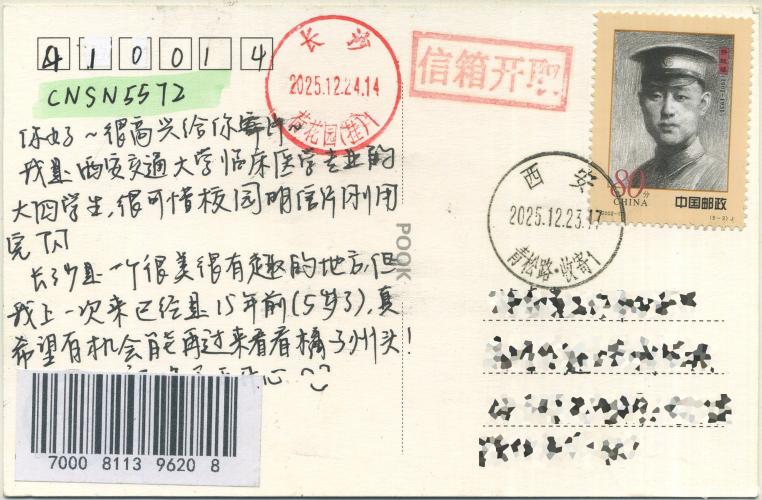 410014
CNSN5572
你好～很高兴给你寄片～
我是西安交通大学临床医学专业的
大四学生，很可惜校园明信片刚用
完 闪
长沙是一个很美很有趣的地方，但
我上一次来已经是15年前(5岁了)，真
希望有机会能再过来看看橘子州头！
心
7000 8113
9620 8
长沙
2025.12.24.14
荷花园(挂)1
信箱开取
POOK
西安
2025.12.23.17
青松路·收寄1
80分
CHINA
中国邮政